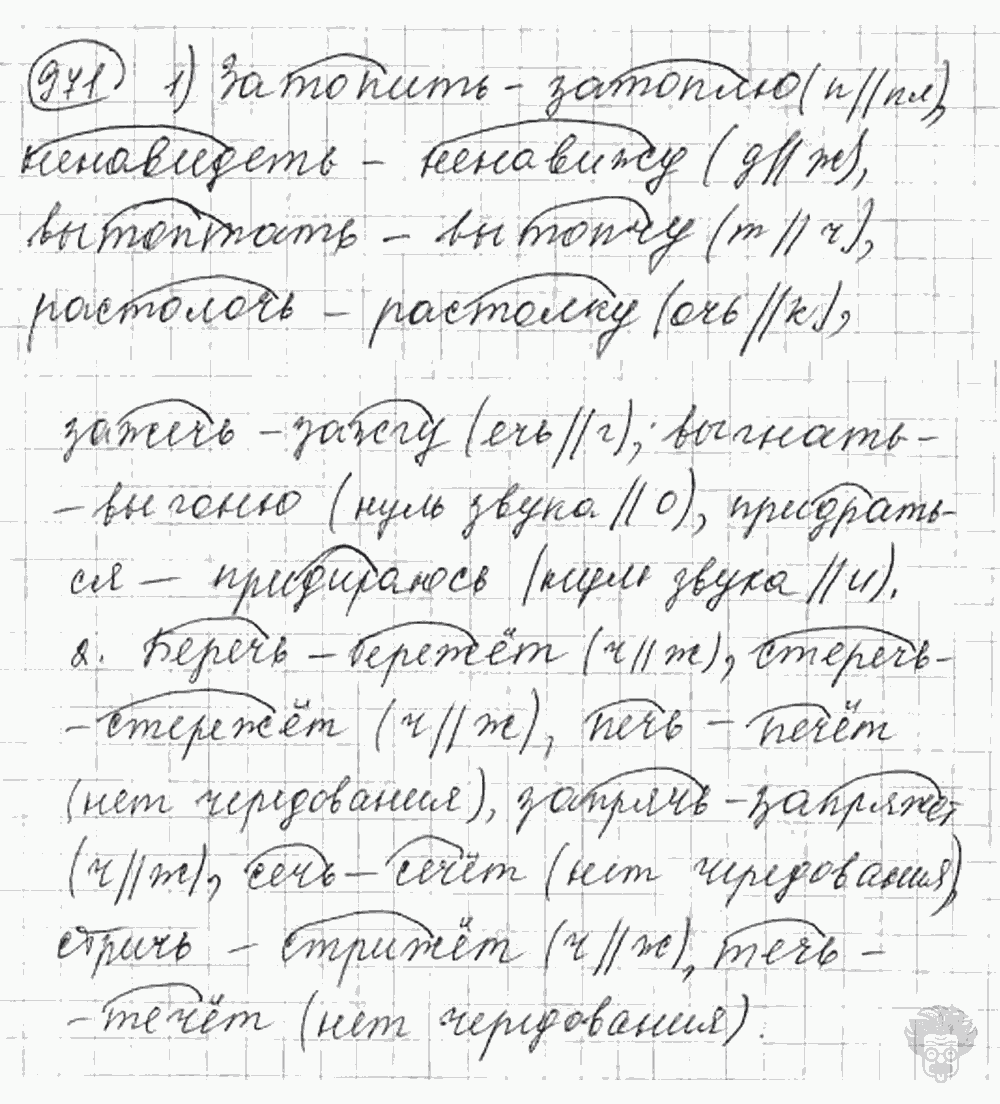 971 1) Затопить – затоплю (п//пл),
ненавидеть – ненавижу (д//ж),
вытоптать – вытопчу (т//ч),
растолочь – растолку (очь//к),
зажечь – зажгу (ечь//г); выгнать –
– выгоню (нуль звука //о), придрать-
ся – придираюсь (нуль звука //и).
2. Беречь – бережёт (ч//ж), стеречь –
– стережёт (ч//ж), печь – печёт
(нет чередования), запрячь – запряжёт
(ч//ж), сечь – сечёт (нет чередования),
стричь – стрижёт (ч//ж), течь –
– течёт (нет чередования).